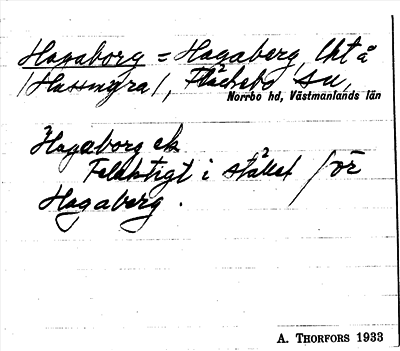 Hagaborg = Hagaberg, lht å
/Hassmyra/, Fläckebo sn,
Norrbo hd, Västmanlands län
Hagaborg ek
Felaktigt i stället för
Hagaberg.
A. THORFORS 1933